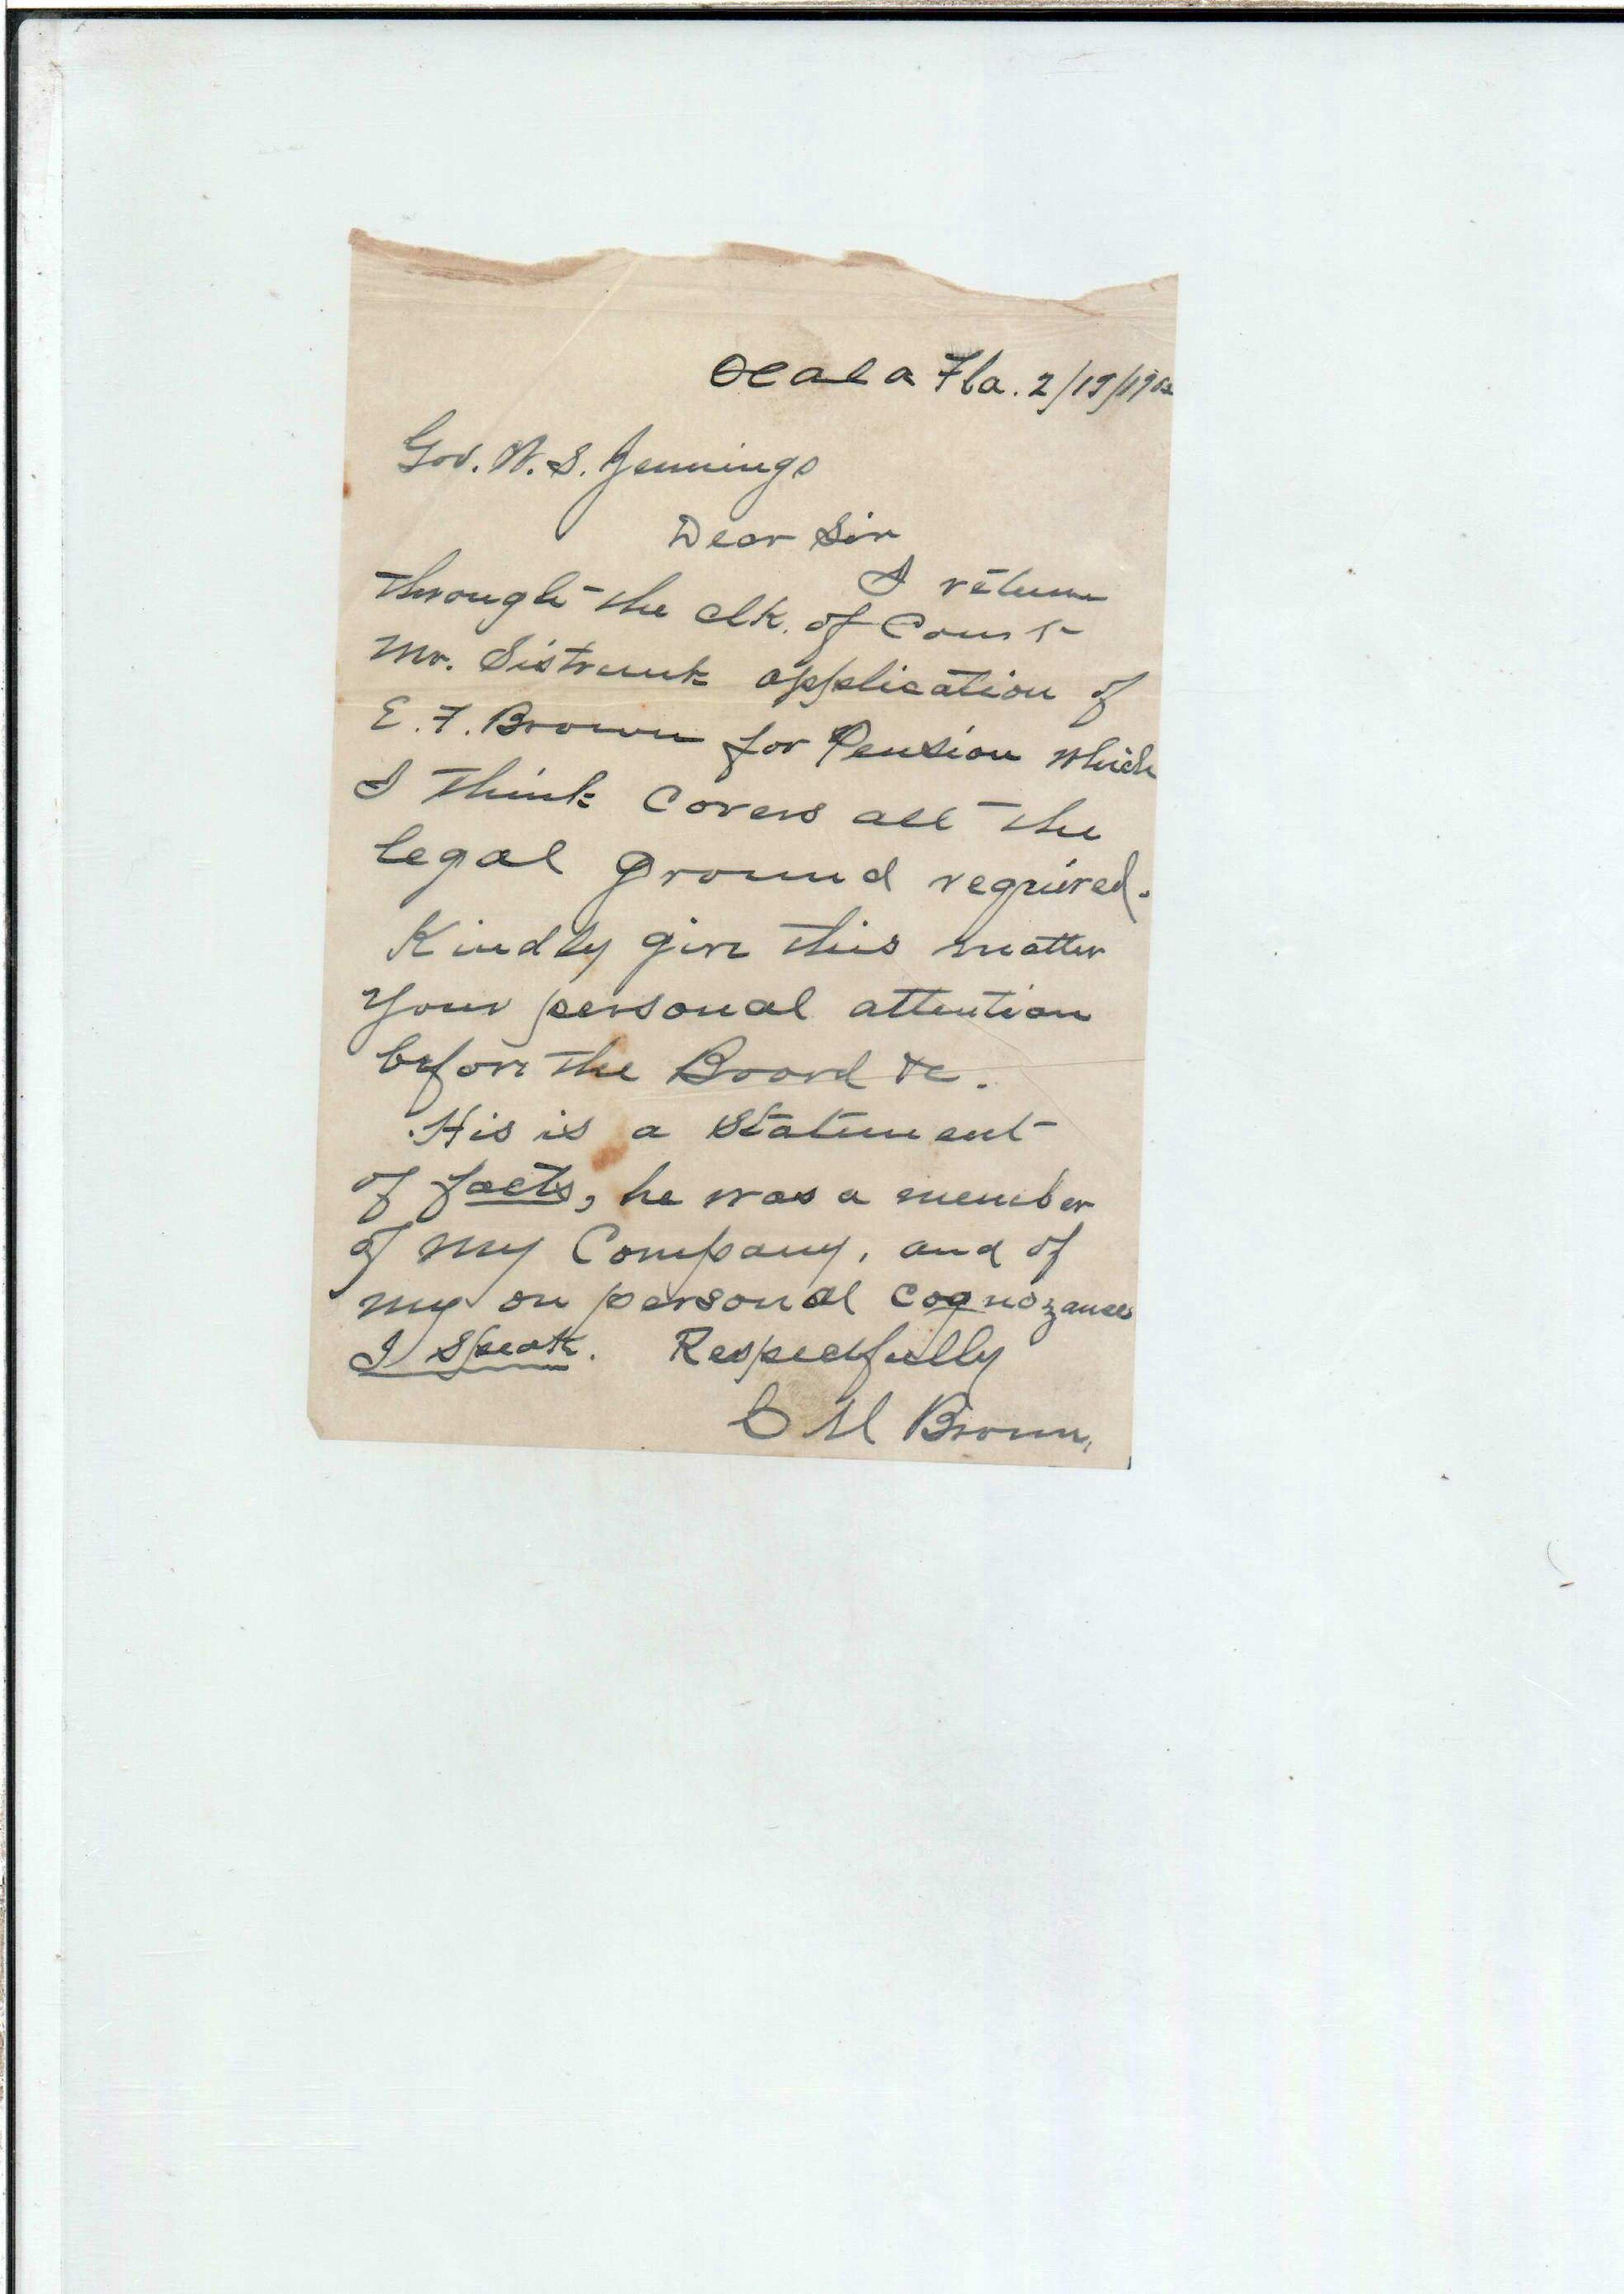 Ocala Fla. 2/19/1902
Gov. W. S. Jennings
Dear Sir
I return
through the clk. of Court
Mr. Sistrunk application of
E. F. Brown for Pension which
I think covers all the
legal ground required.
Kindly give this matter
your personal attention
before the Board &c.
His is a statement
of facts, he was a member
of my Company, and of
my on personal cognozance
I speak. Respectfully
C M Brown,